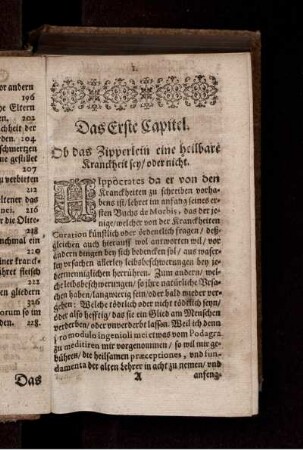 or andern
196
he Eltern
en. 202
chheit der
rden. 204
schmertzen
ne gestillet
207
zu verbieten
212
eltener das
net. 216
e die Olite-
218
nochmal ein
220
iner kranck-
rühret fleisch
den gliedern
226
orum so im
den. 228.
Das
1.
Das Erste Capitel.
Ob das Zipperlein eine heilbare
Kranckheit sey/oder nicht.
HIppocrates da er von den
Kranckheiten zu schreiben vorha-
bens ist/lehret im anfang seines er-
sten Buchs de Morbis, das der je-
nige/welcher von der Kranckheiten
Coration künstlich oder ordentlich fragen/deß-
gleichen auch hierauff wol antworten wil/vor
andern dingen bey sich bedencken sol/aus waser-
ley ursachen allerley leibsbeschwerungen bey je-
dermenniglichen herrühren. Zum andern/wel-
che leibsbeschwerungen/so ihre natürliche Ursa-
chen haben/langwierig sein/oder bald wieder ver-
gehen: Welche tödtlich oder nicht tödtlich seyn/
oder also hefftig/das sie ein Glied am Menschen
verderben/oder unverderbt lassen. Weil ich denn
pro modulo ingenioli mei etwas vom Podagra
zu meditiren mir vorgenommen/so wil mir ge-
bühren/die heilsamen præceptiones, und fun-
damenta der alten Lehrer in acht zu nemen/und
A anfeng-